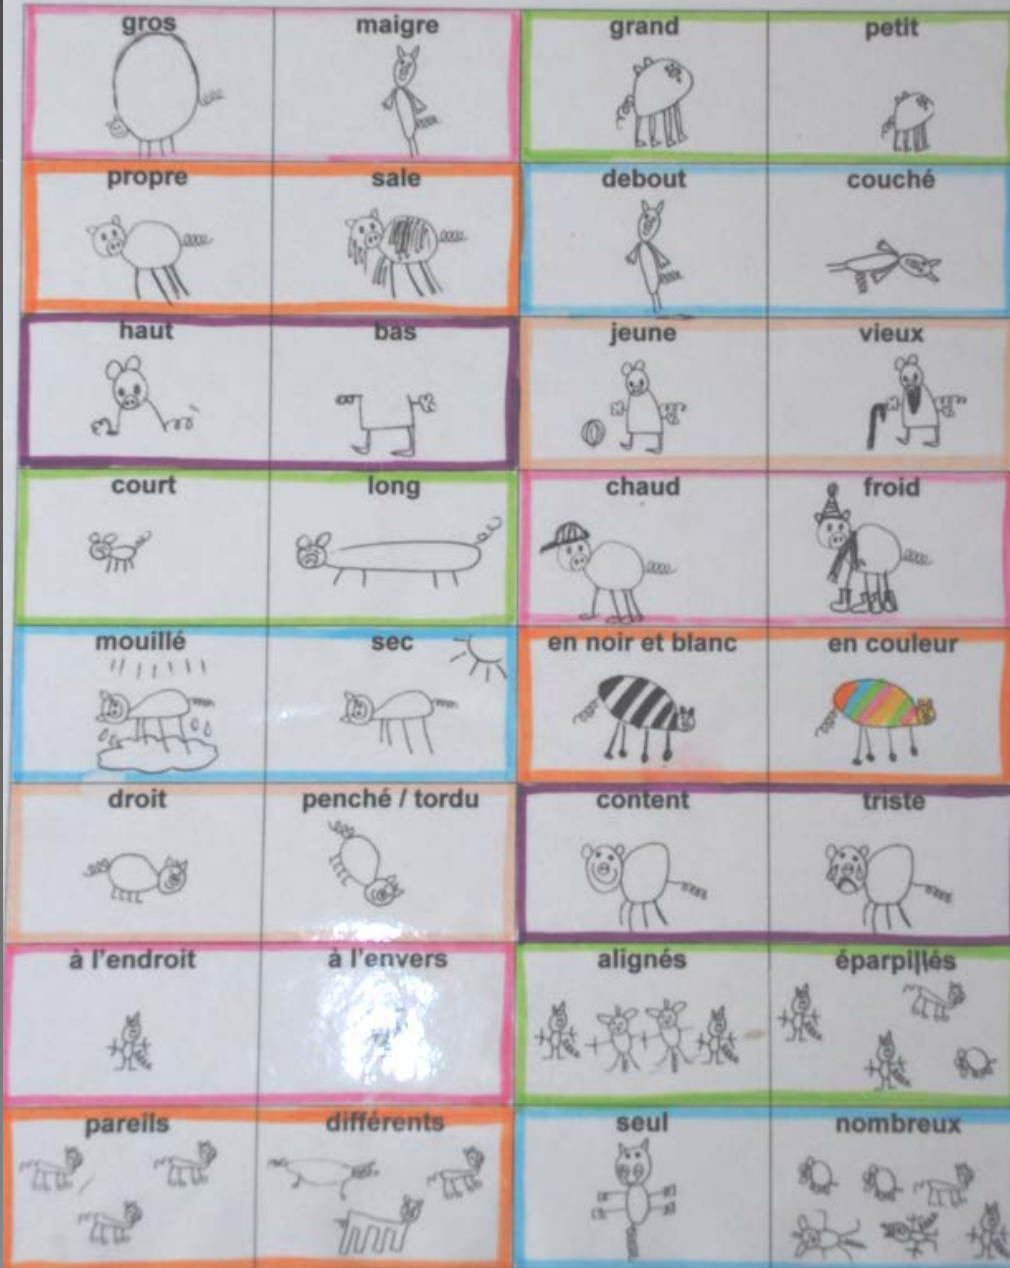 gros maigre grand petit
propre sale debout couché
haut bas jeune vieux
court long chaud froid
mouillé sec en noir et blanc en couleur
droit penché / tordu content triste
à l'endroit à l'envers alignés éparpillés
pareils différents seul nombreux